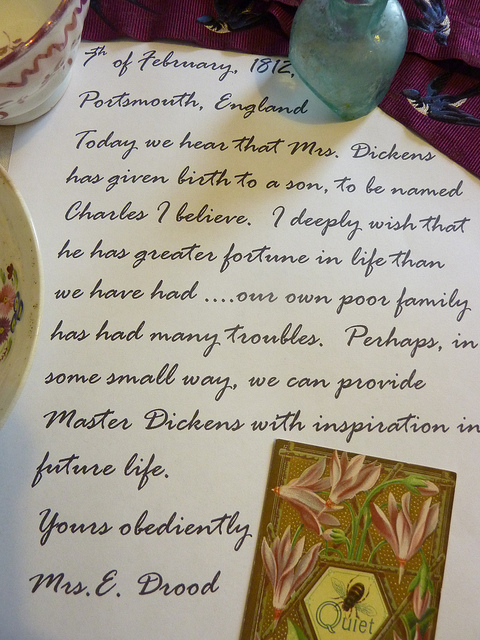 7th of February, 1812,
Portsmouth, England
Today we hear that Mrs. Dickens
has given birth to a son, to be named
Charles I believe. I deeply wish that
he has greater fortune in life than
we have had ....our own poor family
has had many troubles. Perhaps, in
some small way, we can provide
Master Dickens with inspiration in
future life.
Yours obediently
Mrs. E. Drood
Quiet